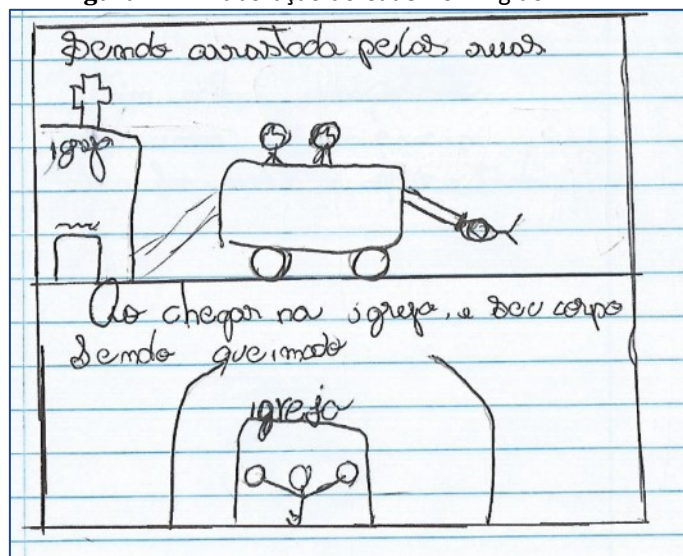 Sendo arrastada pelas ruas
igreja
Ao chegar na igreja, e seu corpo
Sendo queimado
igreja